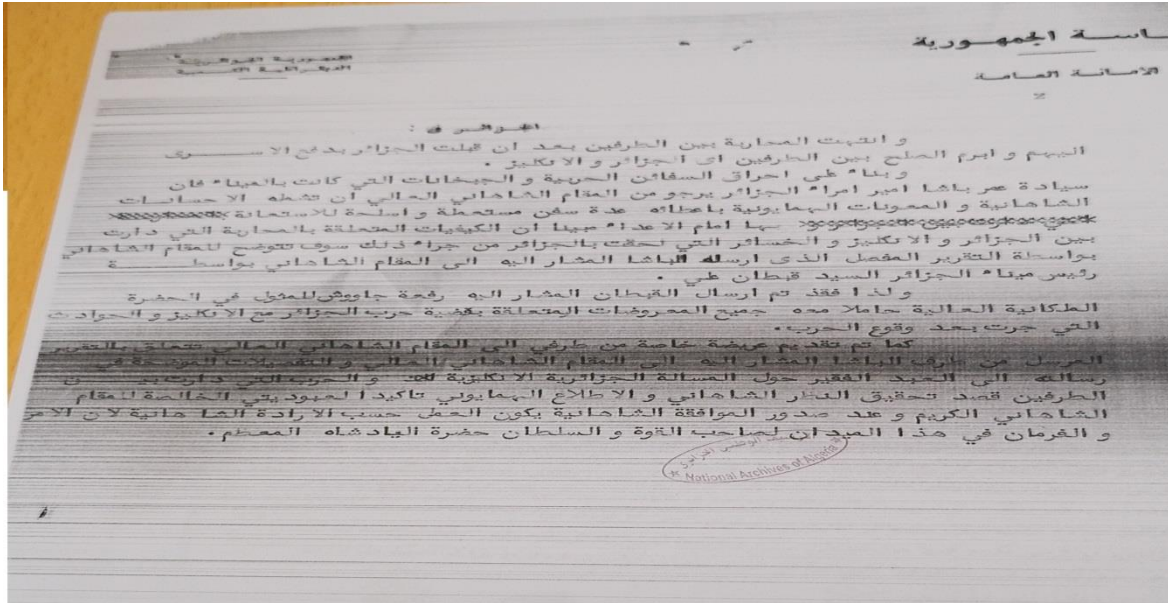 ـاسـة الجمهـوريـة
الجمهورية الجزائرية
الديمقراطية الشعبية
الامـانـة العـامـة
و انتهت المحاربة بين الطرفين بعد ان قبلت الجزائر بدفع الاســـرى
اليهم و ابرم الصلح بين الطرفين اى الجزائر و الانكليز .
وبناء على احراق السفائن الحربية و الجبخانات التي كانت بالميناء فان
سيادة عمر باشا امير امراء الجزائر يرجو من المقام الشاهاني العالي ان تشطه الاحسانـات
الشاهانية و المعونات الهمايونية باعطائه عدة سفن مستعملة و اسلحة للاستعانة
بها امام الاعداء مبينا ان الكيفيات المتعلقة بالمحاربة التي دارت
بين الجزائر و الانكليز و الخسائر التي لحقت بالجزائر من جراء ذلك سوف تتوضح للمقام الشاهاني
بواسطة التقرير المفصل الذى ارسله الباشا المشار اليه الى المقام الشاهاني بواسطـــــة
رئيس ميناء الجزائر السيد قبطان علي .
و لذا فقد تم ارسال القبطان المشار اليه رفعة جاووش للمثول في الحضرة
العالية حاملا معه جميع المعروضات المتعلقة بقضية حرب الجزائر مع الانكليز و الحوادث
التي جرت بعد وقوع الحرب.
كما تم تقديم عريضة خاصة من طرفي الى المقام الشاهاني العالي تتعلق بالتقرير
المرسل من طرف الباشا المشار اليه الى المقام الشاهاني العالي و التفصيلات الموضحة في
رسالته الى العبد الفقير حول المسالة الجزائرية الانكليزية و الحرب التي دارت بيـــن
الطرفين قصد تحقيق النظر الشاهاني و الاطلاع الهمايوني تاكيدا لعبوديتي الخالصة للمقام
الشاهاني الكريم و عند صدور الموافقة الشاهانية يكون العمل حسب الارادة الشاهانية لان الامر
و الفرمان في هذا الميدان لصاحب القوة و السلطان حضرة البادشاه المعظم.
National Archives of Algeria